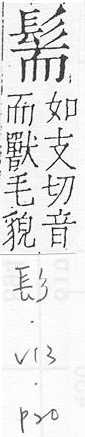 髵
如支切音
而獸毛貌
髟
·
V13
·
p20